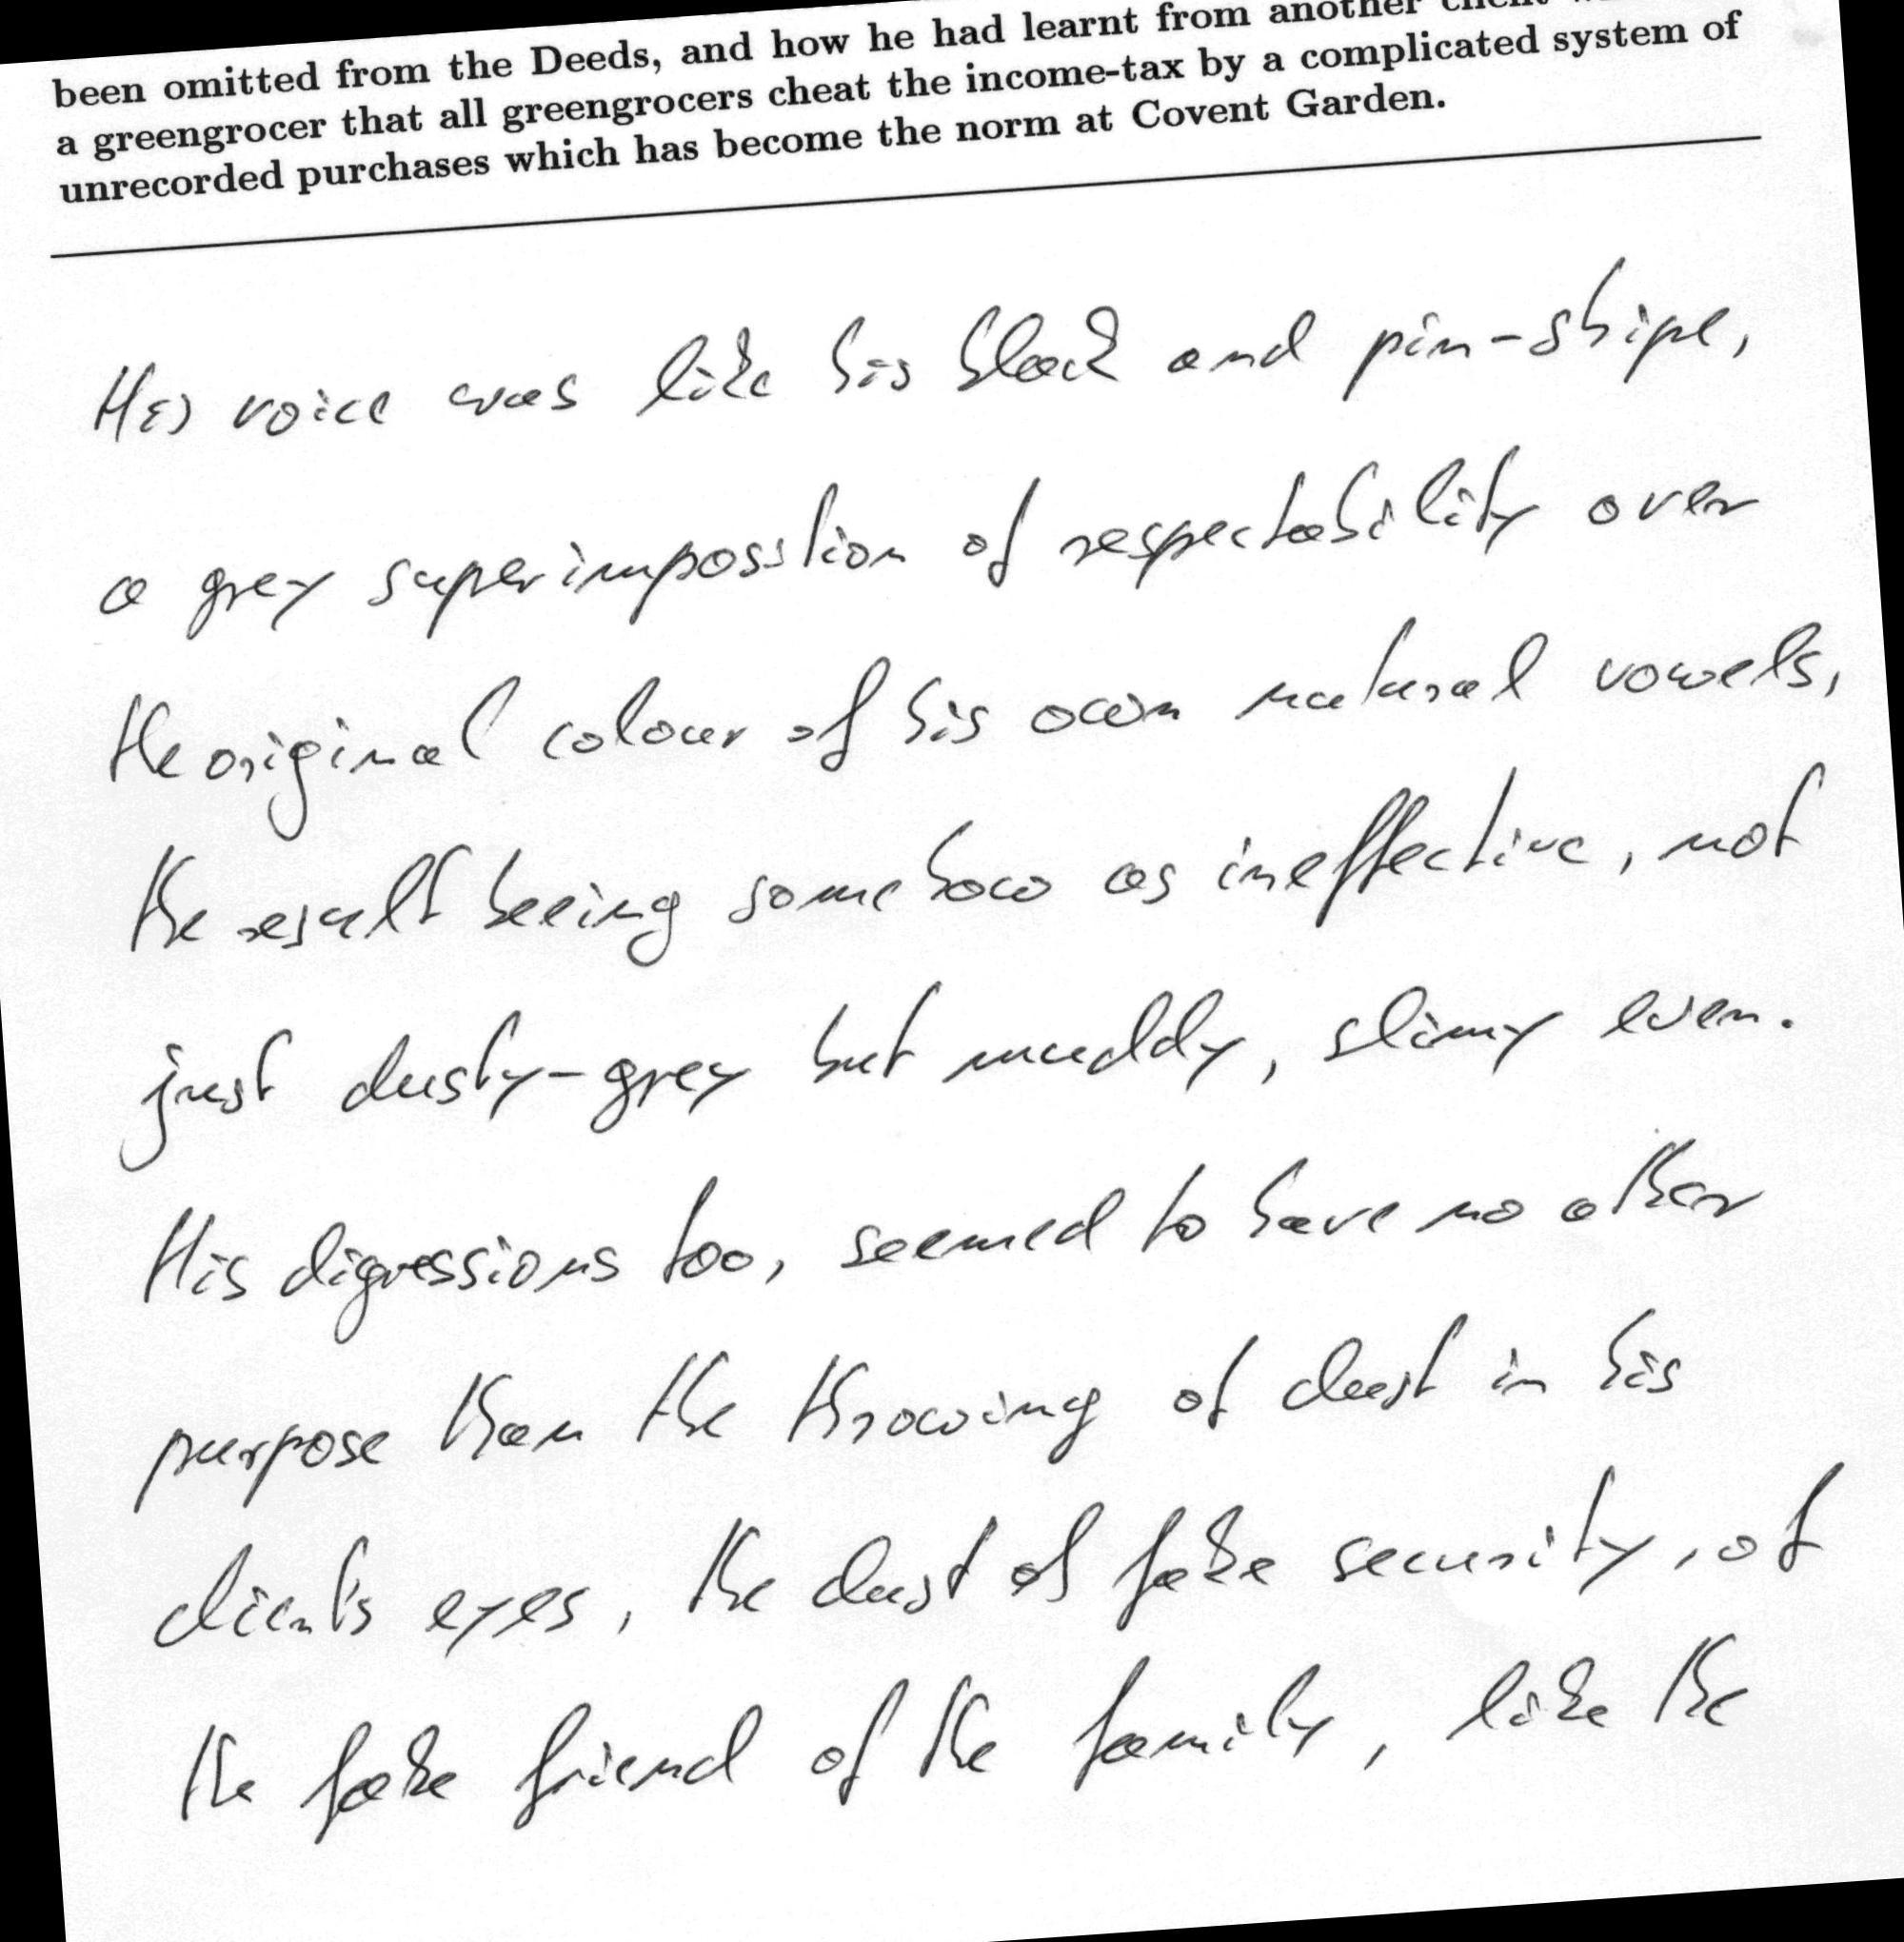 been omitted from the Deeds, and how he had learnt from another
a greengrocer that all greengrocers cheat the income-tax by a complicated system of
unrecorded purchases which has become the norm at Covent Garden.
His voice was like his black and pin-stripe,
a grey superimposstion of respectability over
the original colour of his own natural vowels,
the result beeing somehow as ineffective, not
just dusty-grey but muddy, slimy even.
His digressions too, seemed to have no other
purpose than the throwing of dust in his
clients eyes, the dust of fake security, of
the fake friend of the family, like the